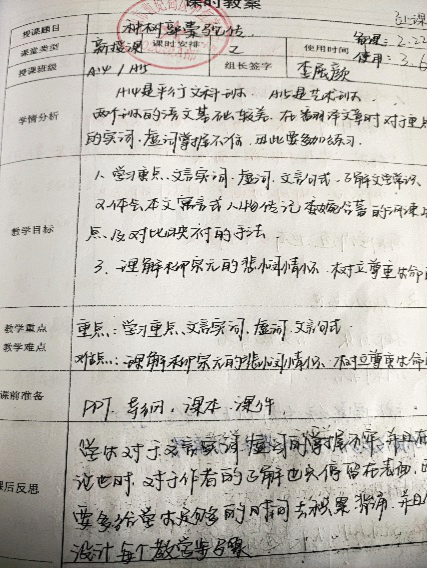 课时教案
授课题目 种树郭橐驼传
课堂类型 新授课 课时安排 2 使用时间
授课班级 A14/A15 组长签字 李展颜
学情分析
A14是平行文科班, A15是艺术班.
两个班的语文基础较差, 在翻译文章时对于重点
的实词, 虚词掌握不佳, 因此要多加练习.
教学目标
1. 学习重点文言实词. 虚词. 文言句式. 了解文学常识.
2. 体会本文寓言式人物传记
点, 及对比映衬的手法
3. 理解柳宗元的悲悯情怀. 树立尊重生命
教学重点 重点: 学习重点文言实词. 虚词. 文言句式
教学难点 难点: 理解柳宗元的悲悯情怀 树立尊重生命
课前准备 PPT. 导纲. 课本. 课件
课后反思
学生对于文言实词虚词的掌握不牢, 并且在
对于作者的了解也只停留在表面,
要多给学生足够的时间去积累 背诵, 并且
设计每个教学步骤